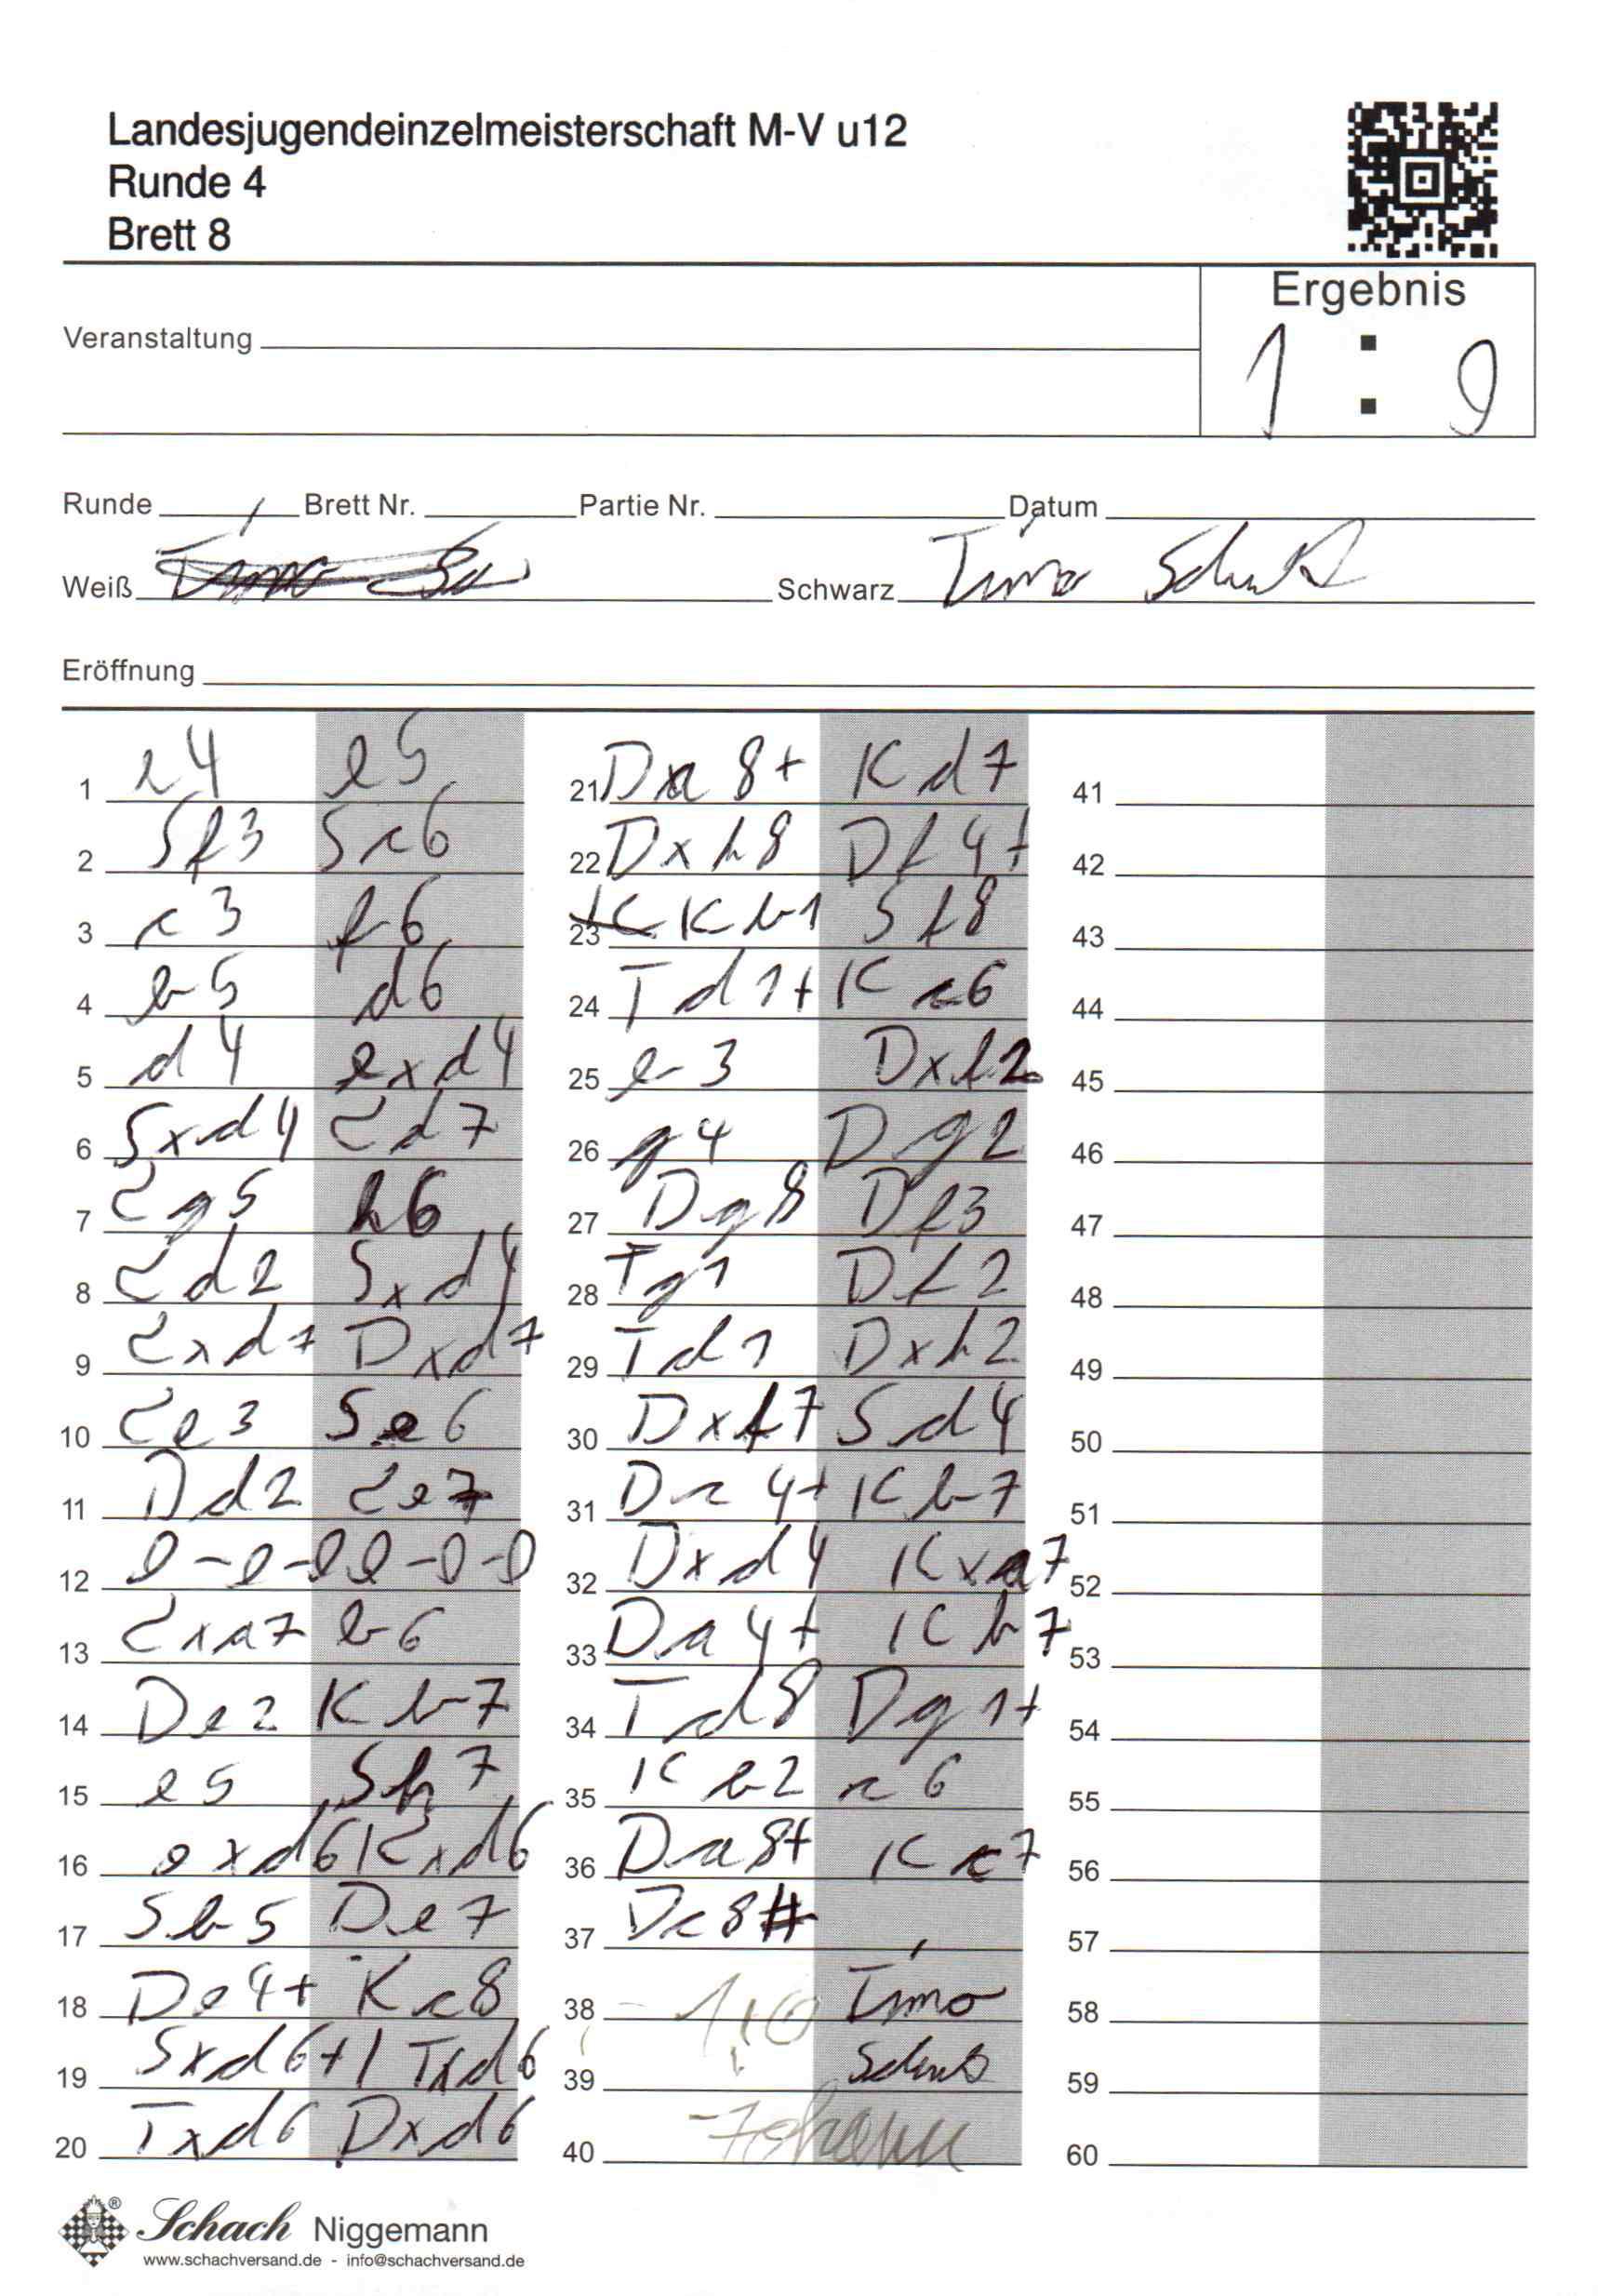 Landesjugendeinzelmeisterschaft M-V u12
Runde 4
Brett 8
Ergebnis
1 : 0
Veranstaltung
Runde Brett Nr. Partie Nr. Datum
Weiß Schwarz Timo
Eröffnung
1 e4 e5
2 Sf3 Sc6
3 c3 f6
4 b5 d6
5 d4 exd4
6 Sxd4 Ld7
7 Lg5 h6
8 Ld2 Sxd4
9 Lxd7 Dxd7
10 Le3 Se6
11 Dd2 Le7
12 0-0-0 0-0-0
13 Lxa7 b6
14 De2 Kb7
15 e5 Sh7
16 exd6 Lxd6
17 Sb5 De7
18 De4+ Kc8
19 Sxd6+ Txd6
20 Txd6 Dxd6
21 Da8+ Kd7
22 Dxh8 Df4+
23 Kb1 Sf8
24 Td1+ Kc6
25 b3 Dxf2
26 g4 Dg2
27 Dg8 Df3
28 Tg1 Df2
29 Td1 Dxh2
30 Dxf7 Sd4
31 Dc4+ Kb7
32 Dxd4 Kxa7
33 Da4+ Kb7
34 Td8 Dg1+
35 Kb2 c6
36 Da8+ Kc7
37 Dc8#
38 1:0 Timo
39
40 Johann
41
42
43
44
45
46
47
48
49
50
51
52
53
54
55
56
57
58
59
60
Schach Niggemann
www.schachversand.de - info@schachversand.de